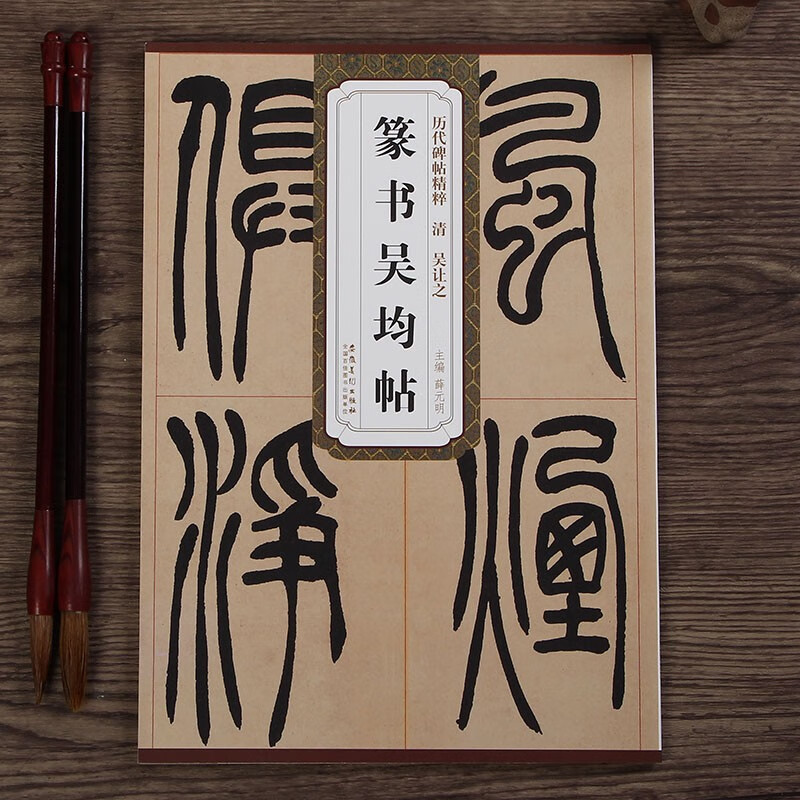 風煙
俱淨
历代碑帖精粹 清 吴让之
篆书吴均帖
主编 薛元明
安徽美术出版社
全国百佳图书出版单位